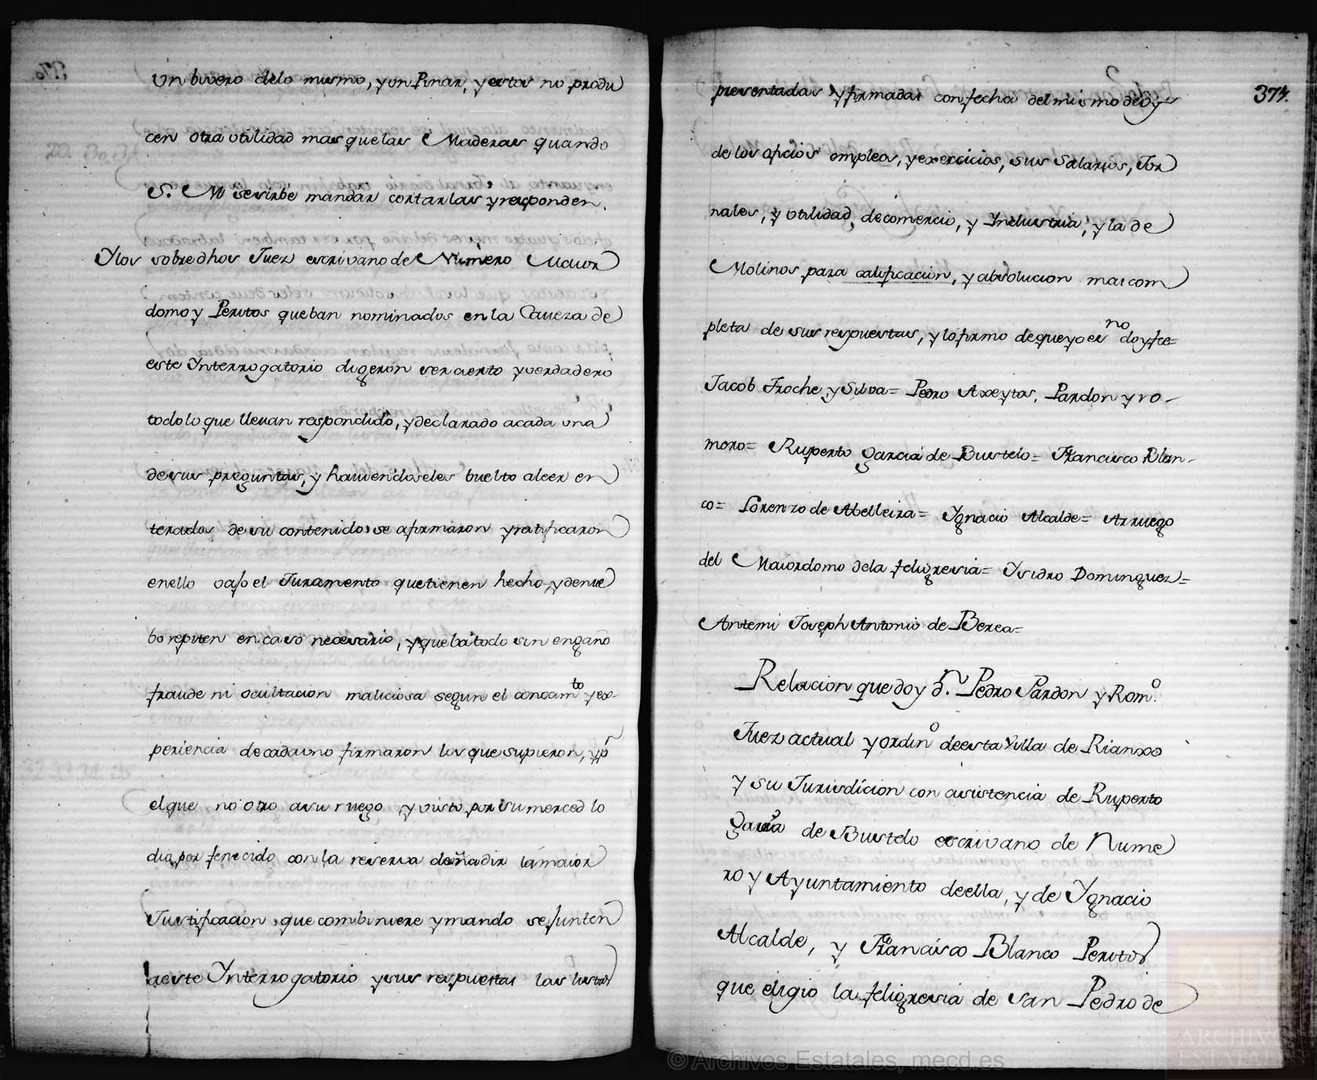 Un bivero delo mismo, y un Pinar, y estos no produ
cen otra utilidad mas que las Maderas quando
S. M. se sirbe mandar cortarlas y responden.
Ylos sobredhos Juez escrivano de Número Maior
domo y Peritos que ban nominados en la Caveza de
este Ynterrogatorio digeron ser cierto y verdadero
todo lo que llevan respondido, y declarado a cada una
de sus preguntas, y haviendoseles buelto aleer en
terados de su contenido se afirmaron y ratificaron
enello vajo el Juramento que tienen hecho, y de nue
bo repiten en caso necesario, y que ba todo sin engaño
fraude ni ocultacion maliciosa segun el conocimto y ex-
periencia de cada uno firmaron los que supieron, y pr
el que no otro a su ruego, y visto por su merced lo
dio por fenecido con la reserva de añadir la maior
Justificacion que combiniere y mando se junten
aeste Ynterrogatorio y sus respuestas las listas
374.
presentadas y firmadas con fecha del mismo de oy
de los oficios empleos, y exercicios, sus salarios, Jor
nales, y utilidad de comercio, y Industria, y la de
Molinos para calificacion, y absolucion mas com
pleta de sus respuestas, y lo firmo de que yo esno doy fee=
Jacob Troche y Silva= Pedro Axeytos, Pardon y ro-
mero= Ruperto garcia de Bustelo= Francisco Blan-
co= Lorenzo de Abelleira= Ygnacio Alcalde= Arruego
del Maiordomo dela feligresia= Ysidro Dominguez=
Antemi Joseph Antonio de Berea=
Relacion que doy Dn. Pedro Pardon y Romo.
Juez actual y ordino deesta Villa de Rianxo
y su Jurisdicion con asistencia de Ruperto
garcia de Bustelo escrivano de Nume
ro y Ayuntamiento deella, y de Ygnacio
Alcalde, y Francisco Blanco Peritos
que eligio la feligresia de san Pedro de
© Archivos Estatales, mecd.es
ARCHIVOS
ESTATALES